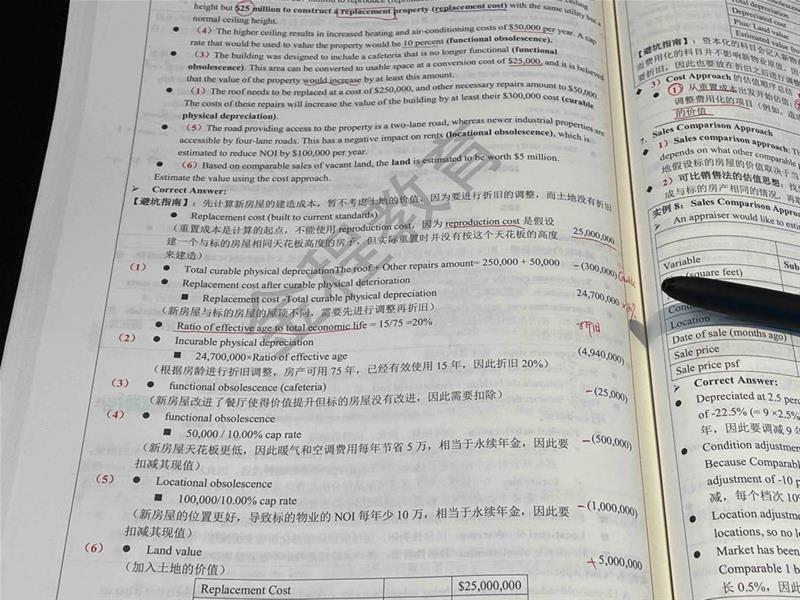 height but $25 million to construct a replacement property (replacement cost) with the same utility but a
normal ceiling height.
(4) The higher ceiling results in increased heating and air-conditioning costs of $50,000 per year. A cap
rate that would be used to value the property would be 10 percent (functional obsolescence).
(3) The building was designed to include a cafeteria that is no longer functional (functional
obsolescence). This area can be converted to usable space at a conversion cost of $25,000, and it is believed
that the value of the property would increase by at least this amount.
(1) The roof needs to be replaced at a cost of $250,000, and other necessary repairs amount to $50,000.
The costs of these repairs will increase the value of the building by at least their $300,000 cost (curable
physical depreciation).
(5) The road providing access to the property is a two-lane road, whereas newer industrial properties are
accessible by four-lane roads. This has a negative impact on rents (locational obsolescence), which is
estimated to reduce NOI by $100,000 per year.
(6) Based on comparable sales of vacant land, the land is estimated to be worth $5 million.
Estimate the value using the cost approach.
➢ Correct Answer:
【避坑指南】:先计算新房屋的建造成本,暂不考虑土地的价值,因为要进行折旧的调整,而土地没有折旧
● Replacement cost (built to current standards)
(重置成本是计算的起点,不能使用 reproduction cost,因为 reproduction cost 是假设 25,000,000
建一个与标的房屋相同天花板高度的房子,但实际重置时并没有按这个天花板的高度
来建造)
(1) ● Total curable physical depreciationThe roof + Other repairs amount= 250,000 + 50,000 −(300,000)
● Replacement cost after curable physical deterioration
■ Replacement cost - Total curable physical depreciation 24,700,000
(新房屋与标的房屋的屋顶不同,需要先进行调整再折旧)
● Ratio of effective age to total economic life = 15/75 =20% 折旧
(2) ● Incurable physical depreciation
■ 24,700,000×Ratio of effective age (4,940,000)
(根据房龄进行折旧调整,房产可用 75 年,已经有效使用 15 年,因此折旧 20%)
(3) ● functional obsolescence (cafeteria) −(25,000)
(新房屋改进了餐厅使得价值提升但标的房屋没有改进,因此需要扣除)
(4) ● functional obsolescence
■ 50,000 / 10.00% cap rate −(500,000)
(新房屋天花板更低,因此暖气和空调费用每年节省 5 万,相当于永续年金,因此要
扣减其现值)
(5) ● Locational obsolescence
■ 100,000/10.00% cap rate −(1,000,000)
(新房屋的位置更好,导致标的物业的 NOI 每年少 10 万,相当于永续年金,因此要
扣减其现值)
(6) ● Land value +5,000,000
(加入土地的价值)
Replacement Cost $25,000,000
金程教育
Depreciated cost
Plus: Land value
Estimated value
【避坑指南】:资本化的科目会记入新物
而费用化的科目并不影响新物业原值,因
要折旧,因此也要放在折旧之后进行调整
3) Cost Approach 的估值顺序总结
① 从重置成本出发开始估值;
调整费用化的项目(例如,造
的价值
7. Sales Comparison Approach
1) Sales comparison approach: Th
depends on what other comparable
地假设标的房屋的价值取决于当
2) 可比销售法的估值思想:找
成与标的房产相同的情况,再取
实例 8: Sales Comparison Appro
➢ An appraiser would like to esti
Variable Sub
(square feet)
Location
Date of sale (months ago)
Sale price
Sale price psf
➢ Correct Answer:
● Depreciated at 2.5 perc
of -22.5% (= 9 ×2.5%
年,因此要调减 9 年
● Condition adjustme
Because Comparabl
adjustment of -10 p
减,每个档次 10%
● Location adjustme
locations, so no l
● Market has been
Comparable 1 b
长 0.5%,因此